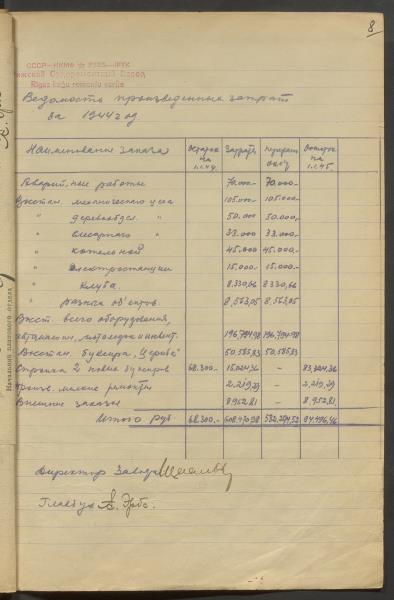 8
СССР-НКМФ
Рижский Судоремонтный Завод
Rīgas kuģu remontu
Ведомость произведенных затрат
за 1944 год
Наименование заказа Остаток на 1.1.44. Затраты Остаток на 1.1.45.
работы 70.000.- 70.000.-
Восстан. механического цеха 105.000.- 105.000.-
" деревообдел. " 50.000 50.000.-
" слесарного " 33.000.- 33.000.-
" котельной 45.000 45.000.-
" электростанции 15.000.- 15.000.-
" клуба. 8.330,66 8330,66
" разных об'ектов. 8.563,05 8.563,05
Восст. всего оборудования,
196.794.98 196.794.98
Восстан. буксира, "Церова" 50.585,83 50.585,83
Стройка 2х новых буксиров 68.300.- 15.024,36 - 83.324,36
Произв. мелкие ремонты 2.219,29 - 2.219,29
Внешние заказы 8952,81 - 8.952,81
Итого руб. 68.300.- 608.470.98 582.274,52 94.496,46
Директор Завода
Главбух
Начальник планового отдела